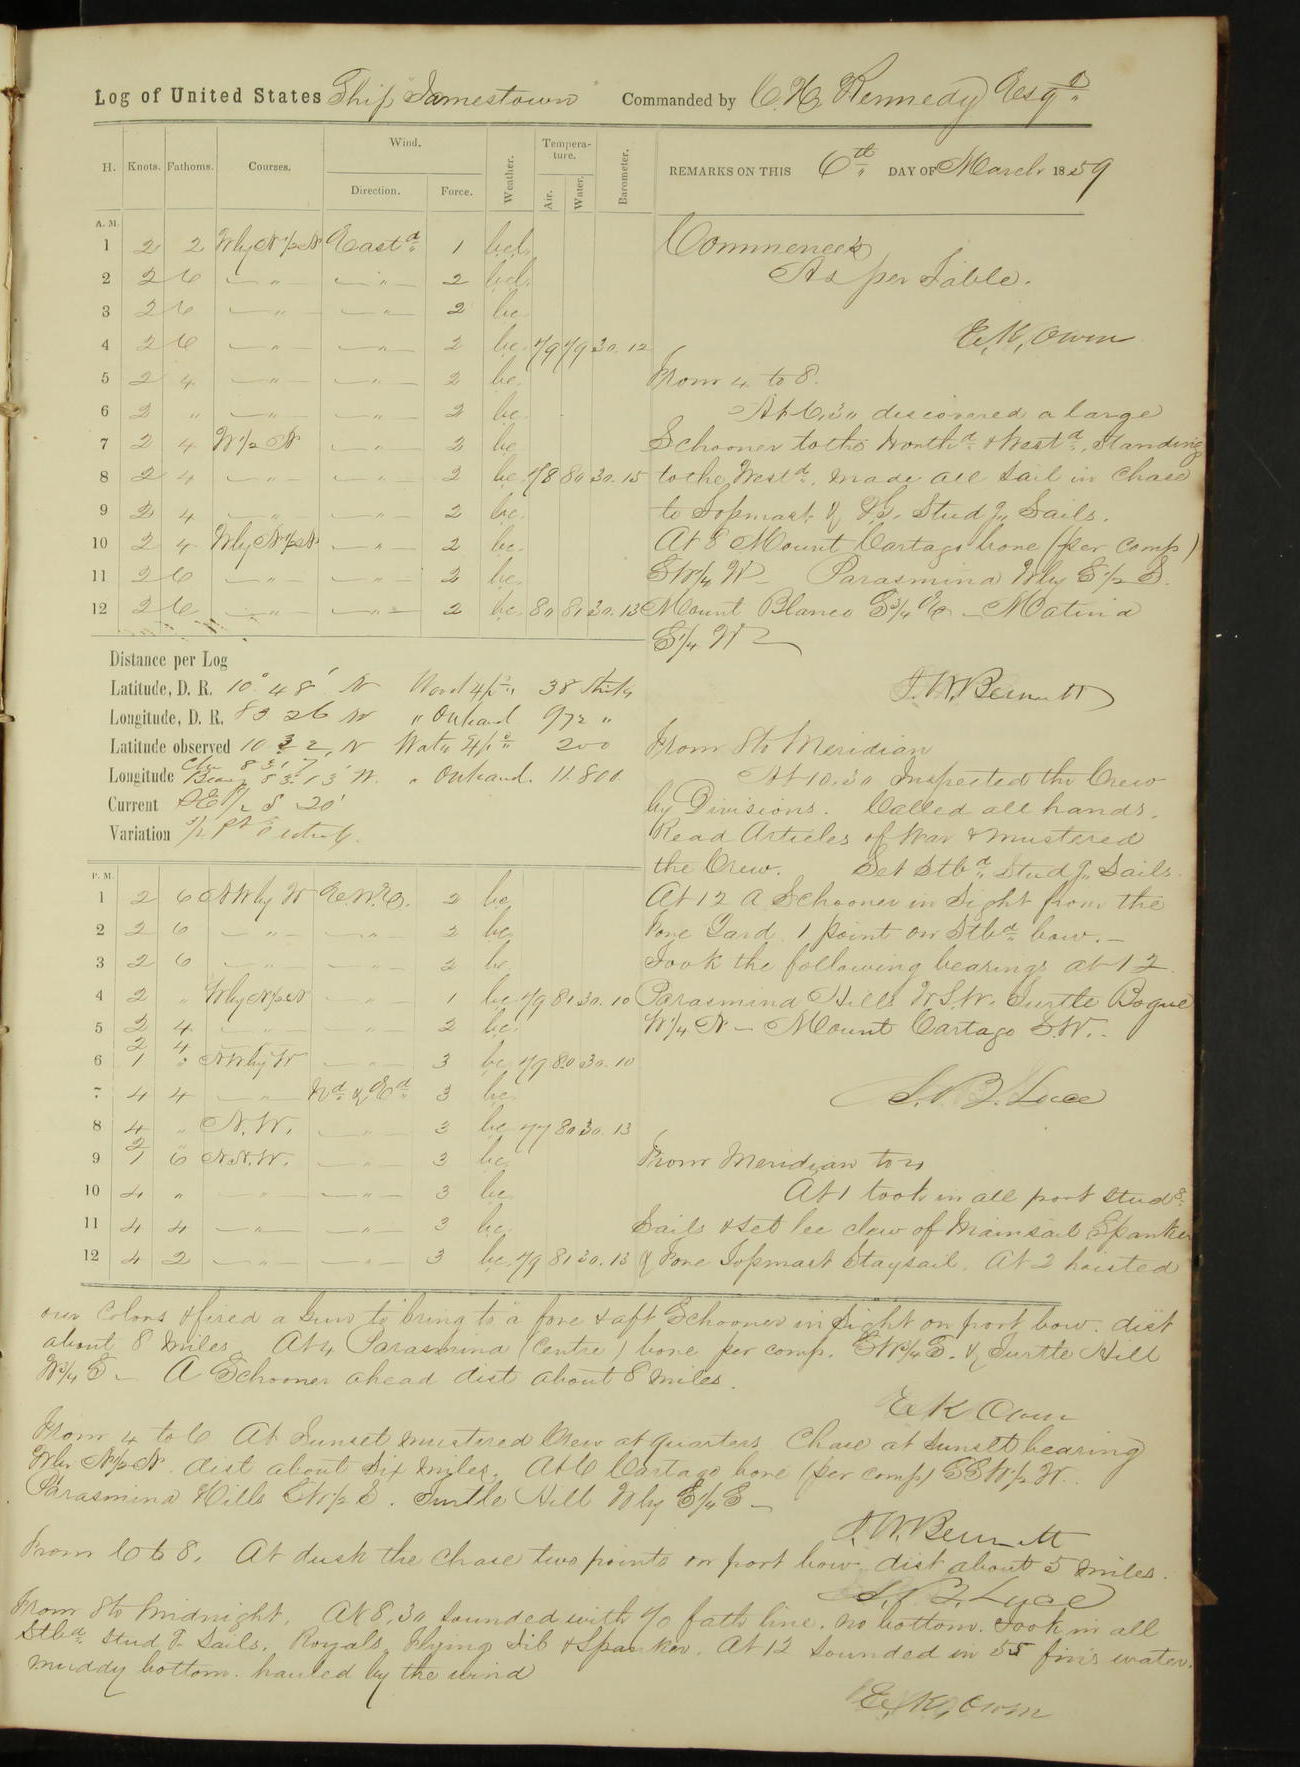 Log of United States Ship Jamestown Commanded by C. H. Kennedy Esqr
H. Knots. Fathoms. Courses. Wind. Direction. Force. Weather. Tempera-ture. Air. Water. Barometer.
REMARKS ON THIS 6th DAY OF March 1859
A. M.
1 2 2 WbyN1/2N Eastd 1 bcl
2 2 6 — " — — " — 2 bcl
3 2 6 — " — — " — 2 bc
4 2 6 — " — — " — 2 bc. 79 79 30.12
5 2 4 — " — — " — 2 bc.
6 2 " — " — — " — 2 bc.
7 2 4 W1/2N — " — 2 bc
8 2 4 — " — — " — 2 bc. 78 80 30.15
9 2 4 — " — — " — 2 bc.
10 2 4 WbyN1/2N — " — 2 bc.
11 2 6 — " — — " — 2 bc.
12 2 6 — " — — " — 2 bc. 80 81 30.13
Commences
As per Table.
E. K. Owen
From 4 to 8.
At 6.30 discovered a large
Schooner to the Northd & Westd, Standing
to the Westd. made all sail in chase
to Topmast & T.G. Studg Sails.
At 8 Mount Cartago bore (per comp)
SW1/4W — Parasmina Wby S1/2S.
Mount Blanco S3/4E — Matina
S1/4W
J. W. Bennett
Distance per Log
Latitude, D. R. 10° 48' N Wood 4/o 38 sticks
Longitude, D. R. 83 26 W " On hand 972 "
Latitude observed 10 32, N Watr 4/o 200
Longitude Chr 83 17 Bear 83.13 W. " On hand. 11.800
Current SE1/2S 20'
Variation 1/2 Pt Easterly.
From 8 to Meridian
At 10.30 Inspected the Crew
by Divisions. Called all hands.
Read Articles of War & mustered
the Crew. Set Stbd Studg Sails.
At 12 A Schooner in Sight from the
Fore Yard 1 point on Stbd bow. —
Took the following bearings at 12.
Parasmina Hills W.S.W. Turtle Bogue
W1/4N — Mount Cartago S.W. —
S. B. Luce
P. M.
1 2 6 NWbyW E.N.E. 2 bc
2 2 6 — " — — " — 2 bc
3 2 6 — " — — " — 2 bc
4 2 " WbyN1/2N — " — 1 bc 79 81 30.10
5 2 4 — " — — " — 2 bc.
6 2 4 1 " NWbyW — " — 3 bc 79 80 30.10
7 4 4 — " — Nd & Ed 3 bc.
8 4 " N.W. — " — 3 bc. 77 80 30.13
9 2 " 1 6 N.N.W. — " — 3 bc
10 4 " — " — — " — 3 bc
11 4 4 — " — — " — 3 bc.
12 4 2 — " — — " — 3 bc. 79 81 30.13
From Meridian to 4
At 1 took in all port studg
Sails & set lee clew of Mainsail Spanker
& Fore Topmast Staysail. At 2 hoisted
our Colors & fired a Gun to bring to a fore & aft Schooner in Sight on port bow. dist
about 8 Miles. At 4 Parasmina (Centre) bore per comp. SW3/4S. & Turtle Hill
W3/4S — A Schooner ahead dist about 8 Miles.
E K Owen
From 4 to 6 At Sunset mustered Crew at quarters. Chase at Sunset bearing
Wby N1/2N. dist about Six Miles. At 6 Cartago bore (per comp) SSW1/2W.
Parasmina Hills SW1/2S. Turtle Hill Wby S1/4S —
J. W. Bennett
From 6 to 8. At dusk the Chase two points on port bow dist about 5 miles.
S. B. Luce
From 8 to Midnight. At 8.30 Sounded with 70 fath line. no bottom. Took in all
Stbd Studg Sails, Royals, Flying Jib & Spanker. At 12 Sounded in 55 fms water.
muddy bottom. hauled by the wind
E. K. Owen